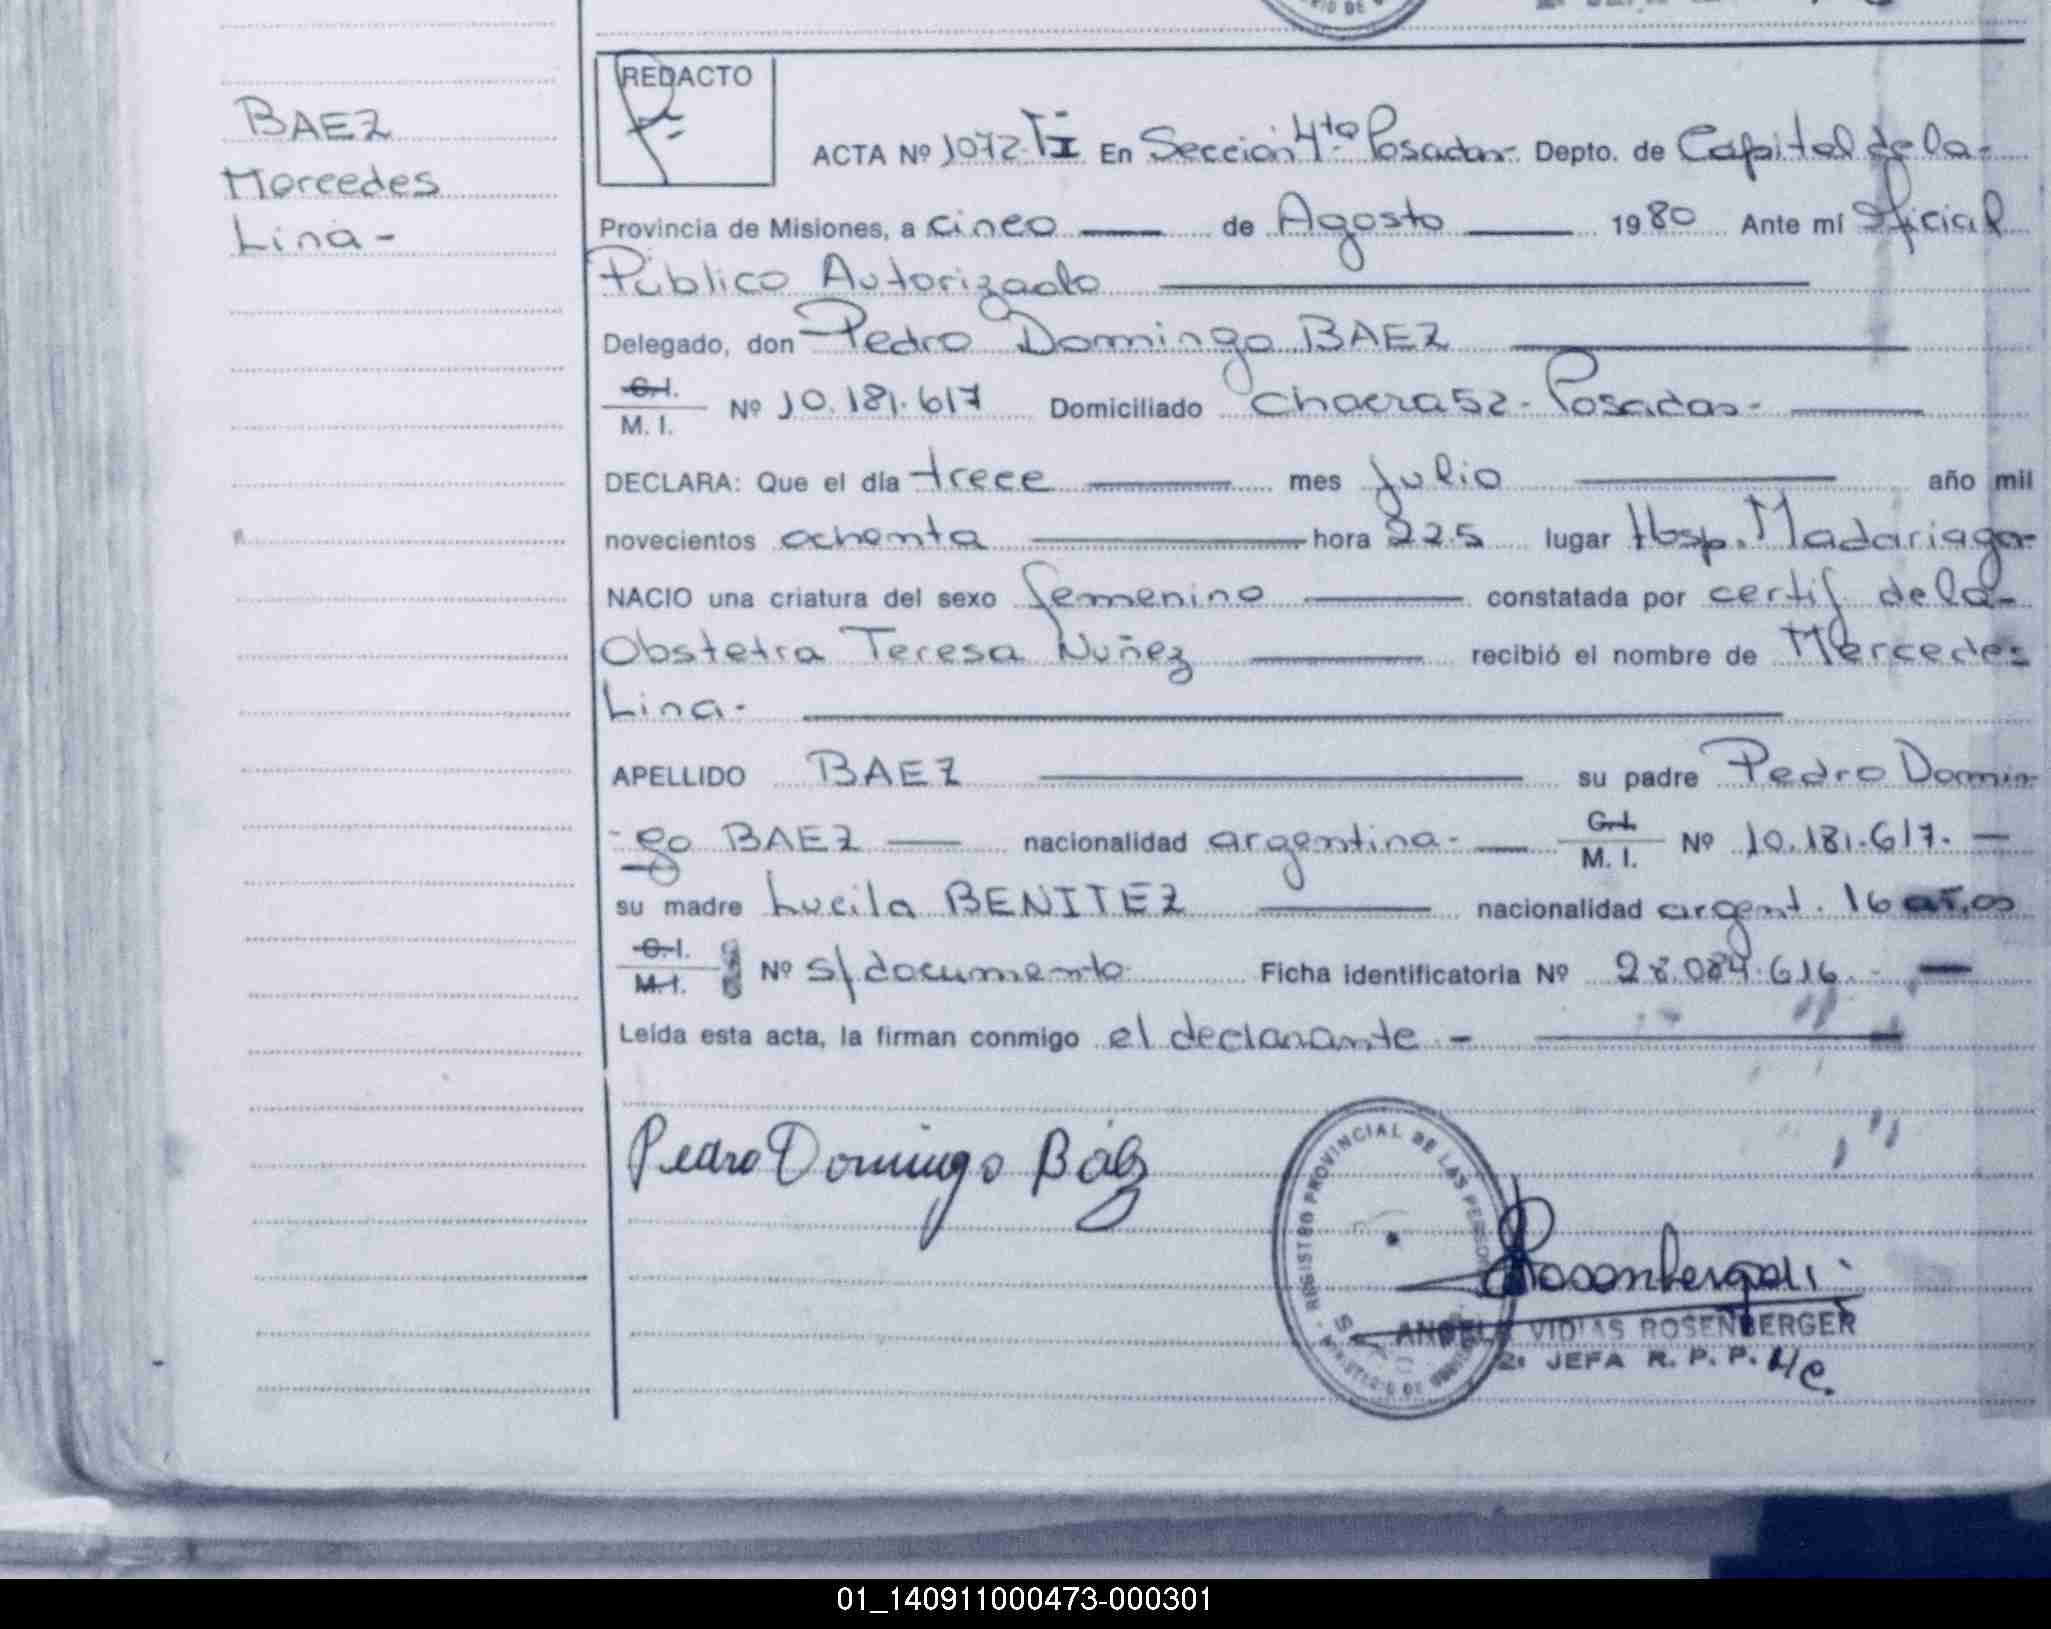 BAEZ
Mercedes
Lina -
REDACTO
ACTA Nº 1072 TI En Sección 4ta Posadas- Depto. de Capital de la-
Provincia de Misiones, a cinco de Agosto 1980 Ante mí Oficial
Público Autorizado
Delegado, don Pedro Domingo BAEZ
C.I.
M. I. Nº 10.181.617 Domiciliado chacra 52 - Posadas-
DECLARA: Que el día trece mes Julio año mil
novecientos ochenta hora 225 lugar Hosp. Madariaga-
NACIO una criatura del sexo femenino constatada por certif de la-
Obstetra Teresa Nuñez recibió el nombre de Mercedes
Lina-
APELLIDO BAEZ su padre Pedro Domin-
-go BAEZ nacionalidad argentina- C.I.
M. I. Nº 10.181.617.-
su madre Lucila BENITEZ nacionalidad argent. 16 años
C.I.
M.I. Nº s/documento- Ficha identificatoria Nº 28.084.616.-
Leída esta acta, la firman conmigo el declarante -
Pedro Domingo Báez
REGISTRO PROVINCIAL DE LAS PERSONAS
ROSENBERGER
2: JEFA R. P. P.
01_140911000473-000301